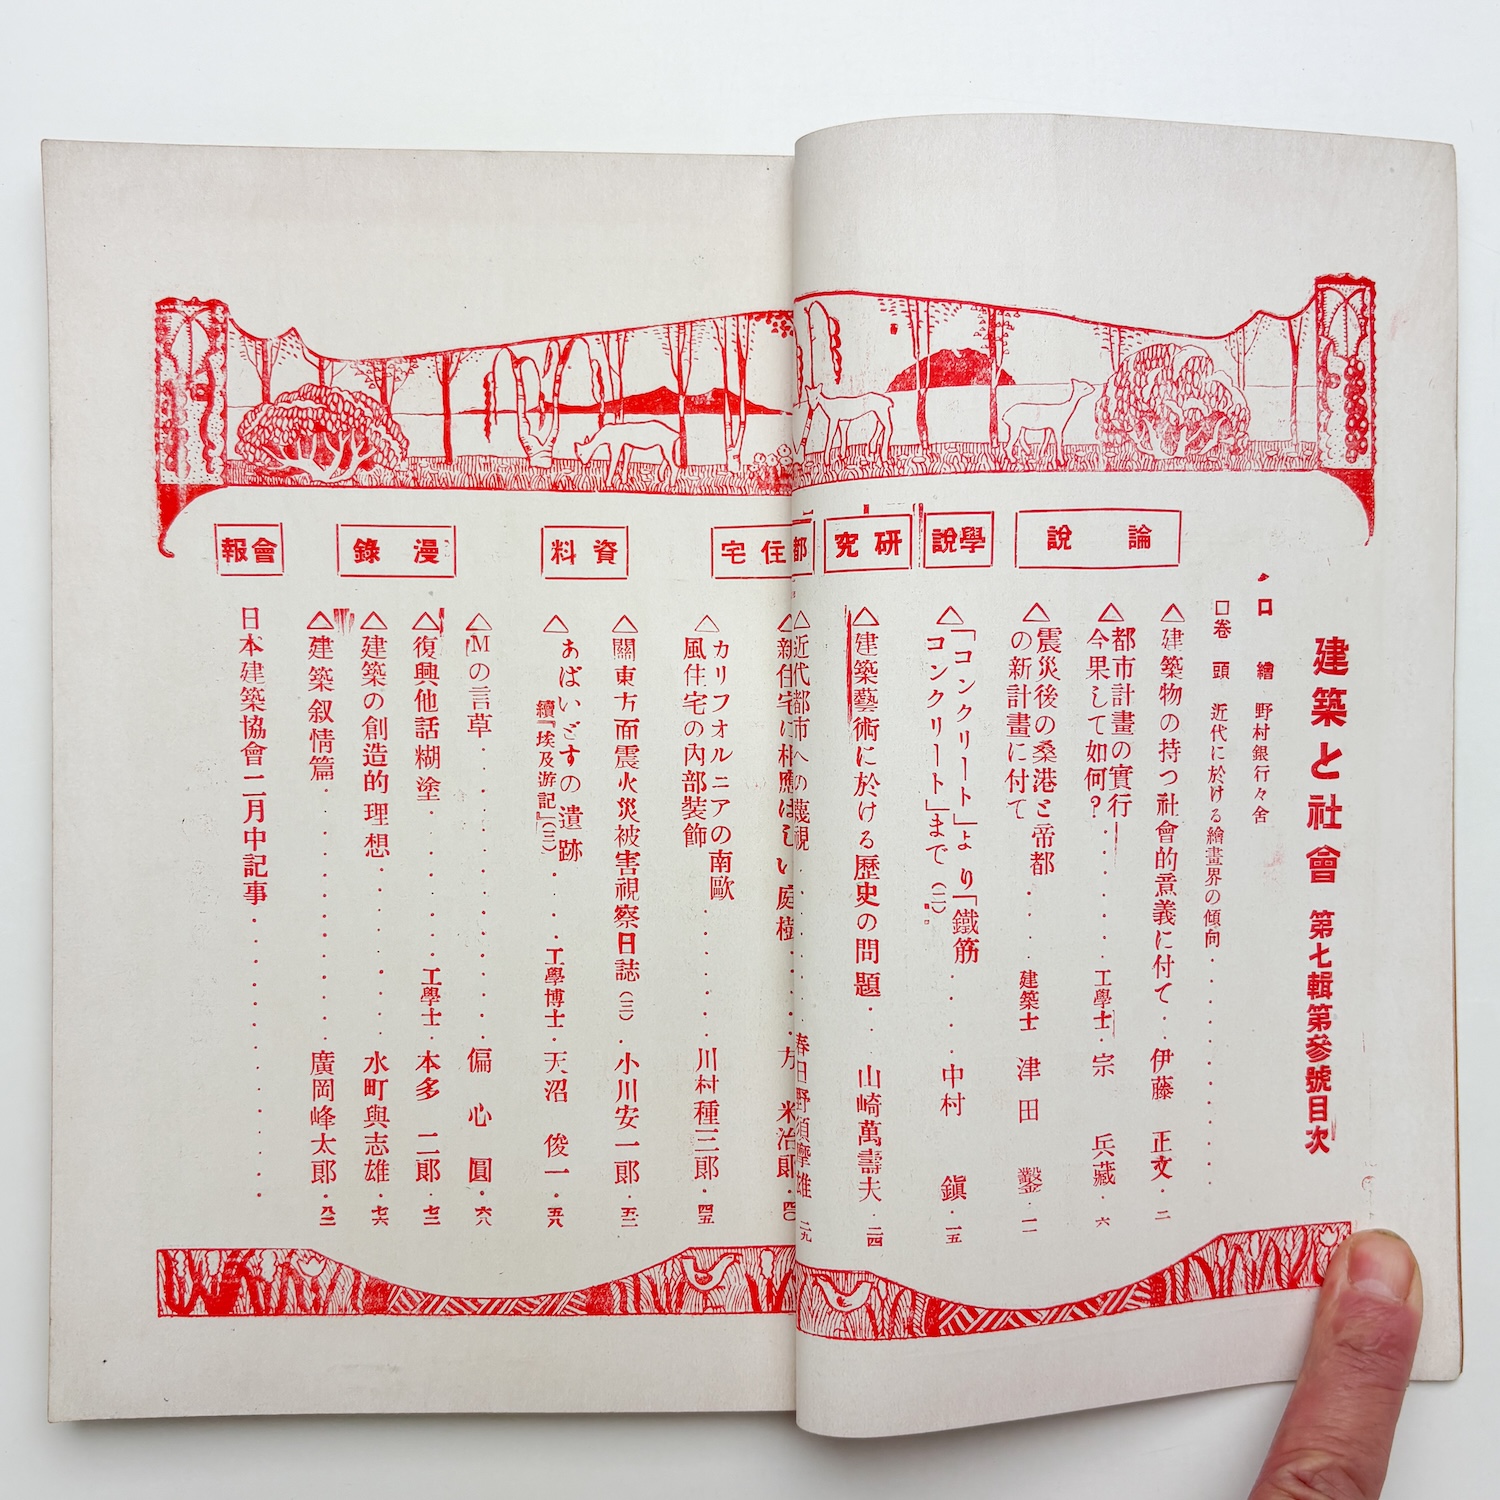 建築と社會 第七輯第參號目次
口繪 野村銀行々舍
□卷頭 近代に於ける繪畫界の傾向
論說
△建築物の持つ社會的意義に付て 伊藤正文 二
△都市計畫の實行
今果して如何? 工學士 宗兵藏 六
△震災後の桑港と帝都
の新計畫に付て 建築士 津田鑿 一一
學說
△「コンクリート」より「鐵筋
コンクリート」まで(二) 中村鎭 一五
研究
△建築藝術に於ける歷史の問題 山崎萬壽夫 二四
都
△近代都市への蔑視 春日野須摩雄 二九
住宅
△新住宅に相應はしい庭樹 方米治郞 四〇
△カリフオルニアの南歐
風住宅の內部裝飾 川村種三郞 四五
資料
△關東方面震火災被害視察日誌(三) 小川安一郞 五二
△あばいどすの遺跡
續『埃及游記』(三) 工學博士 天沼俊一 五八
漫錄
△Mの言草 偏心圓 六八
△復興他話糊塗 工學士 本多二郞 七二
△建築の創造的理想 水町與志雄 七六
△建築叙情篇 廣岡峰太郞 八二
會報
日本建築協會二月中記事